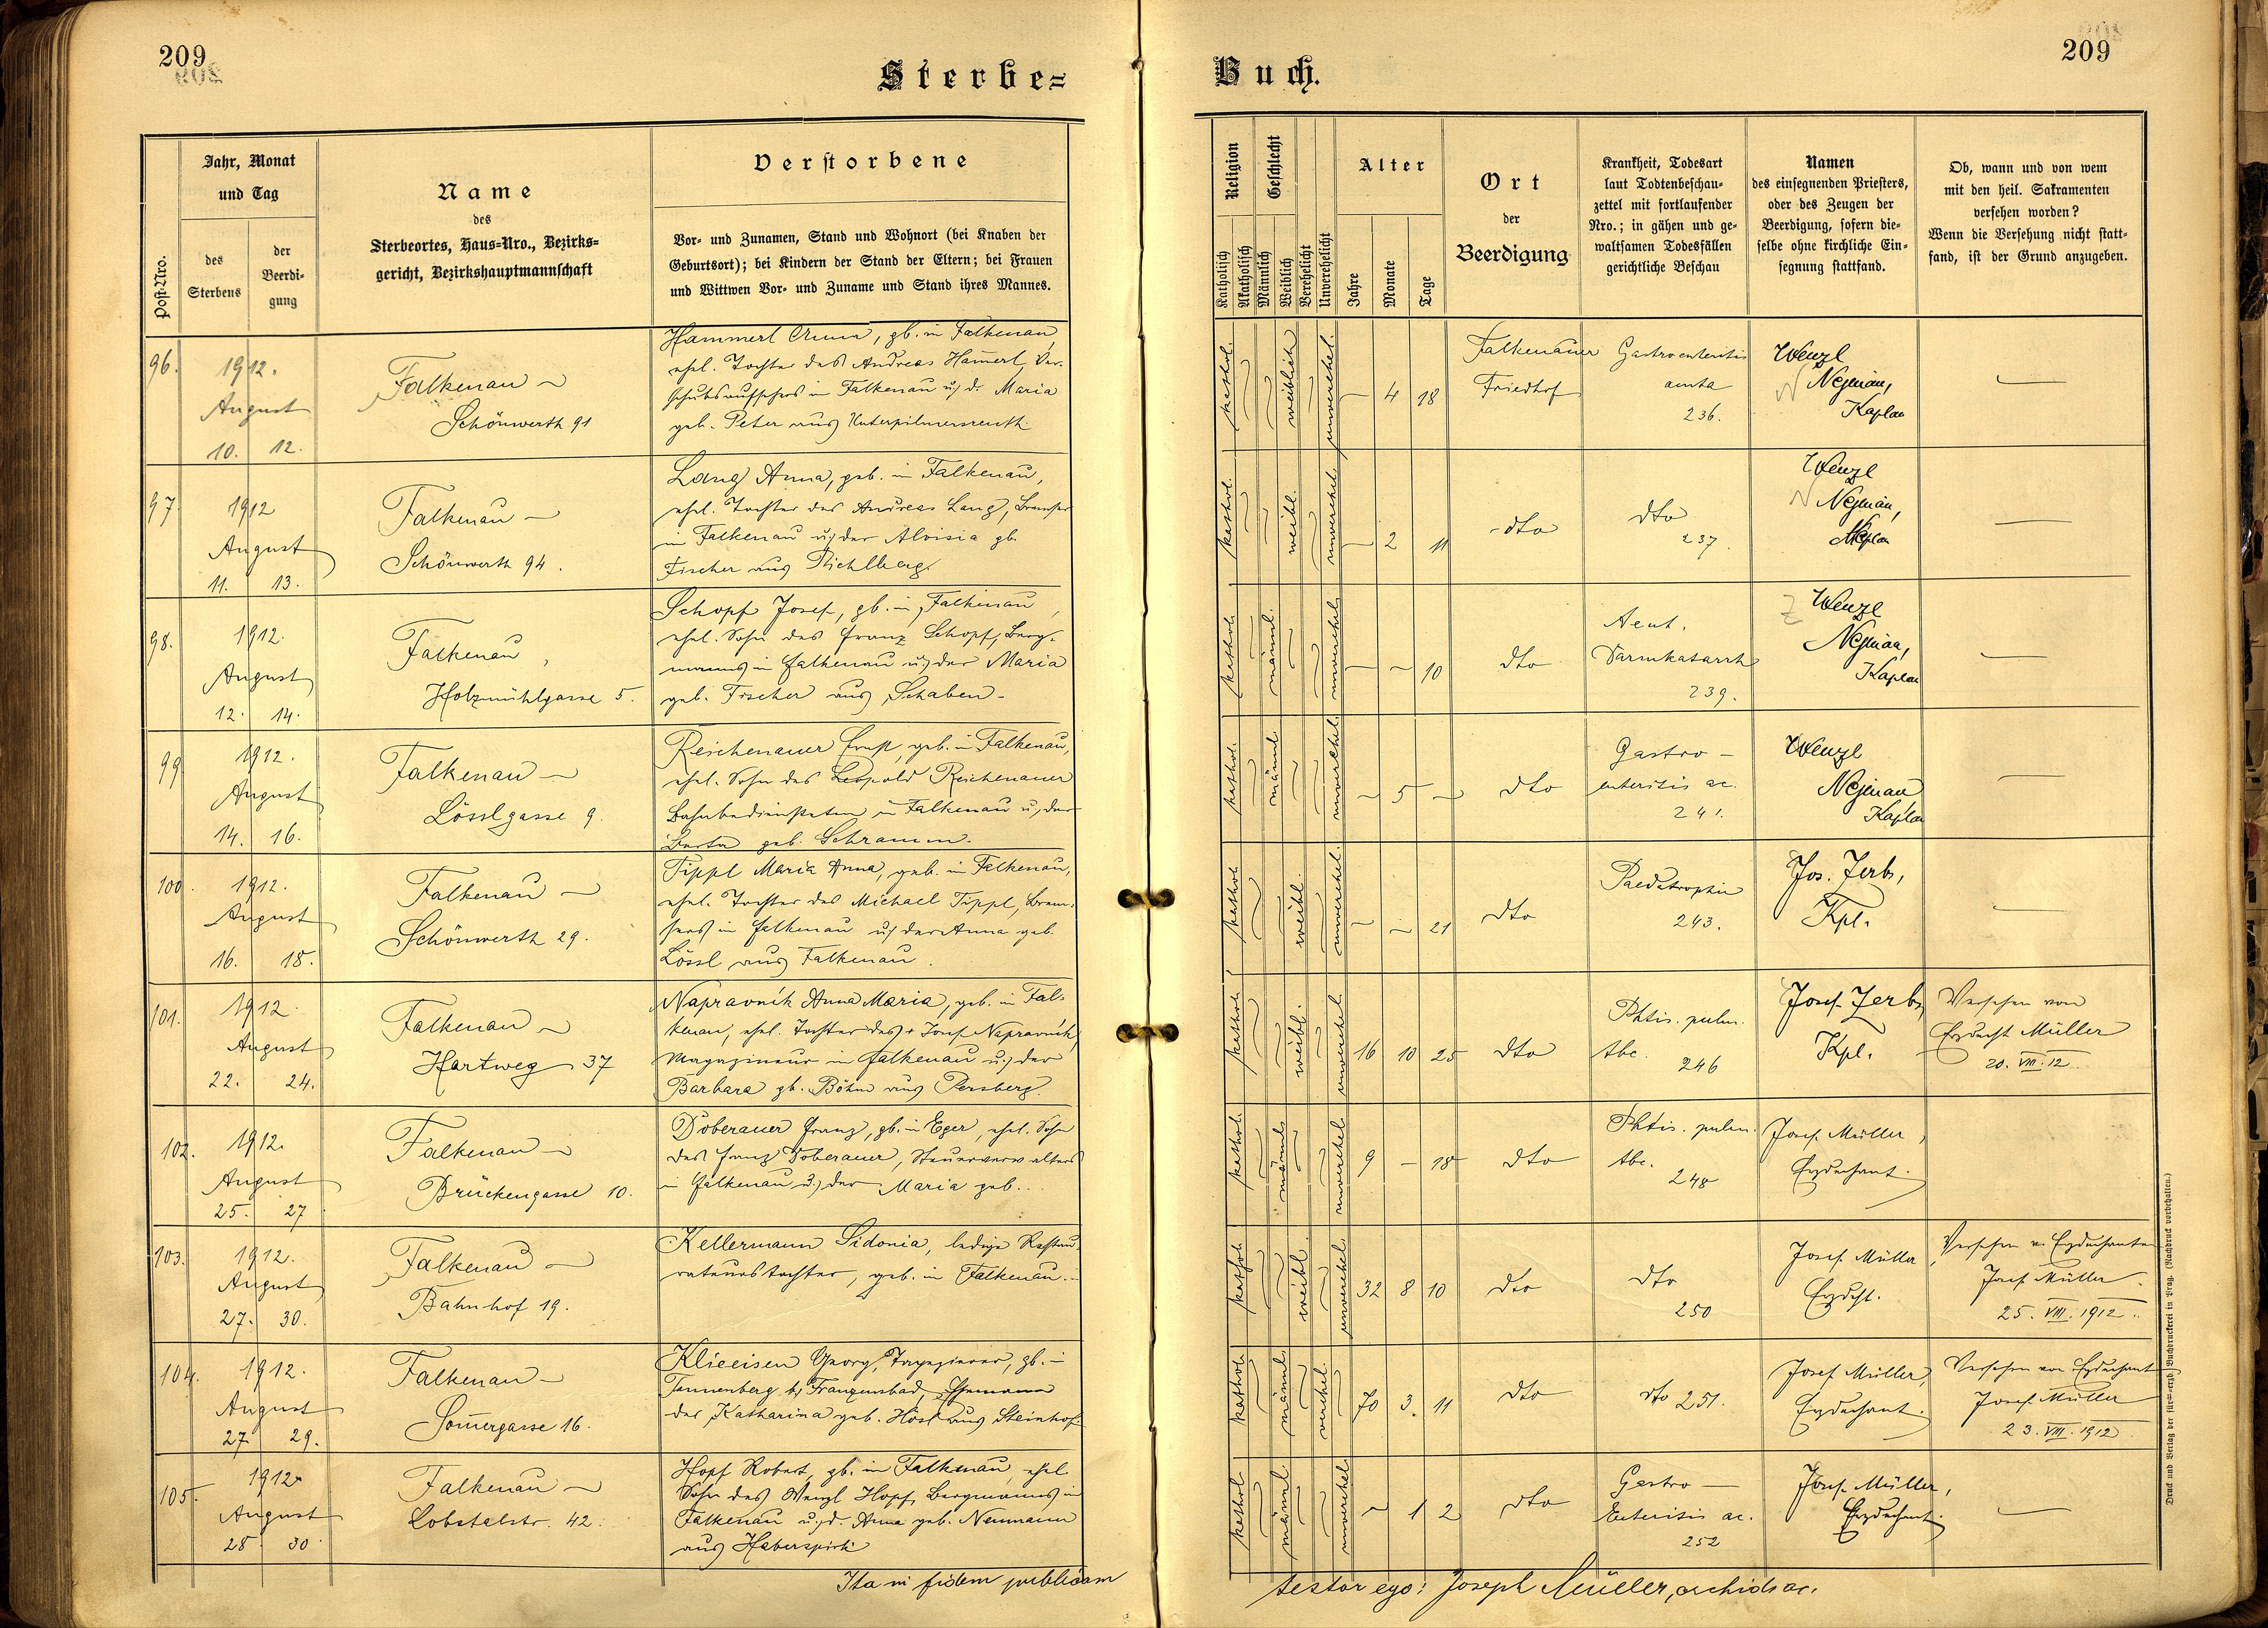 209
209
Sterbe=
Buch.
Post-Nro.
Jahr, Monat
und Tag
des
Sterbens
der
Beerdi-
gung
Name
des
Sterbeortes, Haus=Nro., Bezirks=
gericht, Bezirkshauptmannschaft
Verstorbene
Vor- und Zunamen, Stand und Wohnort (bei Knaben der
Geburtsort); bei Kindern der Stand der Eltern; bei Frauen
und Wittwen Vor- und Zuname und Stand ihres Mannes.
Religion
Katholisch
Akatholisch
Geschlecht
Männlich
Weiblich
Verehelicht
Unverehelicht
Alter
Jahre
Monate
Tage
Ort
der
Beerdigung
Krankheit, Todesart
laut Todtenbeschau-
zettel mit fortlaufender
Nro.; in gähen und ge-
waltsamen Todesfällen
gerichtliche Beschau
Namen
des einsegnenden Priesters,
oder des Zeugen der
Beerdigung, sofern die-
selbe ohne kirchliche Ein-
segnung stattfand.
Ob, wann und von wem
mit den heil. Sakramenten
versehen worden?
Wenn die Versehung nicht statt-
fand, ist der Grund anzugeben.
96.
1912.
August
10. 12.
Falkenau –
Schönwerth 91
Hammerl Anna, gb. in Falkenau,
ehel. Tochter des Andreas Ham̄erl, Ver-
schubsaufsehers in Falkenau u. d. Maria
geb. Peter aus Unterpilmersreuth.
kathol.
weiblich
unverehel.
– 4 18
Falkenauer
Friedhof
Gastroenteritis
acuta
236.
Wenzl
Nejman,
Kaplan
—
97.
1912
August
11. 13.
Falkenau –
Schönwerth 94.
Lang Anna, geb. in Falkenau,
ehel. Tochter des Andreas Lang, Bremser
in Falkenau u. der Aloisia gb.
Fischer aus Pichlberg.
kathol.
weibl.
unverehel.
– 2 11
dto
dto
237.
Wenzl
Nejman,
Kaplan
—
98.
1912.
August
12. 14.
Falkenau,
Holzmühlgasse 5.
Schopf Josef, gb. in Falkenau,
ehel. Sohn des Franz Schopf, Berg-
manns in Falkenau u. der Maria
geb. Fischer aus Schaben.
kathol.
männl.
unverehel.
– – 10
dto
Acut.
Darmkatarrh
239.
Wenzl
Nejman,
Kaplan
—
99
1912.
August
14. 16.
Falkenau –
Lösslgasse 9.
Reichenauer Ernst, geb. in Falkenau,
ehel. Sohn des Leopold Reichenauer
Bahnbediensteten in Falkenau u. der
Berta geb. Schramm.
kathol.
männl.
unverehel.
– 5 –
dto
Gastro –
enteritis ac.
241.
Wenzl
Nejman
Kaplan
—
100.
1912.
August
16. 18.
Falkenau –
Schönwerth 29.
Tippl Maria Anna, geb. in Falkenau,
ehel. Tochter des Michael Tippl, Brem-
sers in Falkenau u. der Anna geb.
Lössl aus Falkenau.
kathol.
weibl.
unverehel.
– – 21
dto
Paedatrophie
243.
Jos. Zerbs,
Kpl.
—
101.
1912.
August
22. 24.
Falkenau –
Hartweg 37
Napravník Anna Maria, geb. in Fal-
kenau, ehel. Tochter des + Josef Napravník,
Magazineur in Falkenau u. der
Barbara gb. Böhm aus Persberg.
kathol.
weibl.
unverehel.
16 10 25
dto
Phtis. pulm.
tbc.
246
Josef Zerbs,
Kpl.
Versehen von
Erzdecht Müller
20. VIII. 12.
102.
1912.
August
25. 27
Falkenau –
Brückengasse 10.
Doberauer Franz, gb. in Eger, ehel. Sohn
des Franz Doberauer, Steuerverwalters
in Falkenau u. der Maria geb...
kathol.
männl.
unverehel.
9 – 18
dto
Phtis. pulm.
tbc.
248
Josef Müller,
Erzdechant.
103.
1912.
August
27. 30.
Falkenau –
Bahnhof 19.
Kellermann Sidonia, ledige Restau-
rateurstochter, geb. in Falkenau.
kathol.
weibl.
unverehel.
32 8 10
dto
dto
250
Josef Müller,
Erzdcht.
Versehen v. Erzdechanten
Josef Müller
25. VIII. 1912.
104.
1912.
August
27 29.
Falkenau –
Som̄ergasse 16.
Klieeisen Georg, Tapezierer, gb. in
Tannenberg b. Franzensbad, Ehemann
der Katharina geb. Hösl aus Steinhof.
kathol.
männl.
verehel.
70 3. 11
dto
dto 251.
Josef Müller,
Erzdechant.
Versehen von Erzdechant
Josef Müller
23. VIII. 1912
105.
1912
August
28 30
Falkenau –
Lobstalstr. 42.
Hopf Robert, gb. in Falkenau, ehel.
Sohn des Wenzl Hopf, Bergmanns in
Falkenau u. d. Anna geb. Neumann
aus Haberspirk
kathol.
männl.
unverehel.
– 1 2
dto
Gastro –
Enteritis ac.
252
Josef Müller,
Erzdechant.
—
Ita in fidem publicam
testor ego: Joseph Müller, archidiac.
Druck und Verlag der fürst-erzb. Buchdruckerei in Prag. (Nachdruck vorbehalten.)